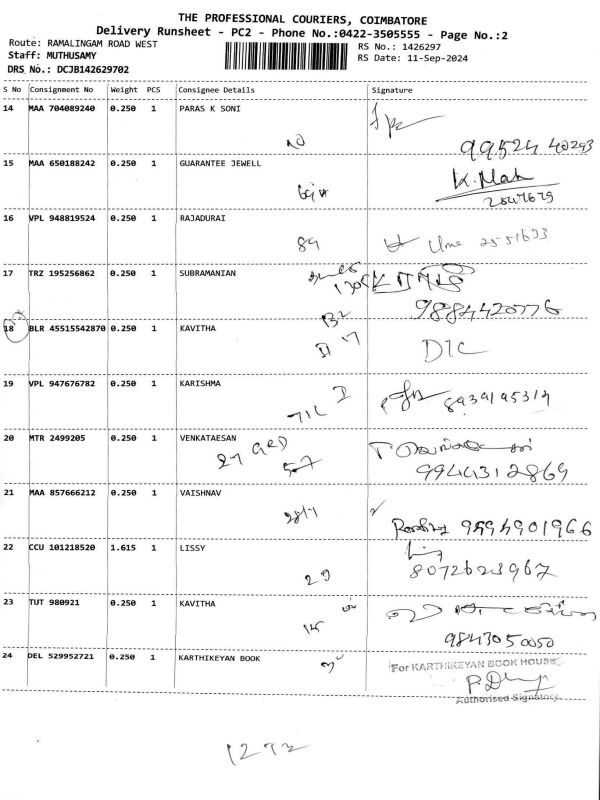 THE PROFESSIONAL COURIERS, COIMBATORE
Delivery Runsheet - PC2 - Phone No.:0422-3505555 - Page No.:2
Route: RAMALINGAM ROAD WEST
RS No.: 1426297
Staff: MUTHUSAMY
RS Date: 11-Sep-2024
DRS No.: DCJB142629702
S No Consignment No Weight PCS Consignee Details Signature
14 MAA 704089240 0.250 1 PARAS K SONI
99524 40293
15 MAA 650188242 0.250 1 GUARANTEE JEWELL
2547679
16 VPL 948819524 0.250 1 RAJADURAI
89 Uma 2551633
17 TRZ 195256862 0.250 1 SUBRAMANIAN
9884420776
18 BLR 45515542870 0.250 1 KAVITHA
D1C
19 VPL 947676782 0.250 1 KARISHMA
71C I 8939195314
20 MTR 2499205 0.250 1 VENKATAESAN
27 GRD 57
9944312869
21 MAA 857666212 0.250 1 VAISHNAV
9594901966
22 CCU 101218520 1.615 1 LISSY
29 8072623967
23 TUT 980921 0.250 1 KAVITHA
9843050050
24 DEL 529952721 0.250 1 KARTHIKEYAN BOOK
For KARTHIKEYAN BOOK HOUSE
Authorised Signatory
1272